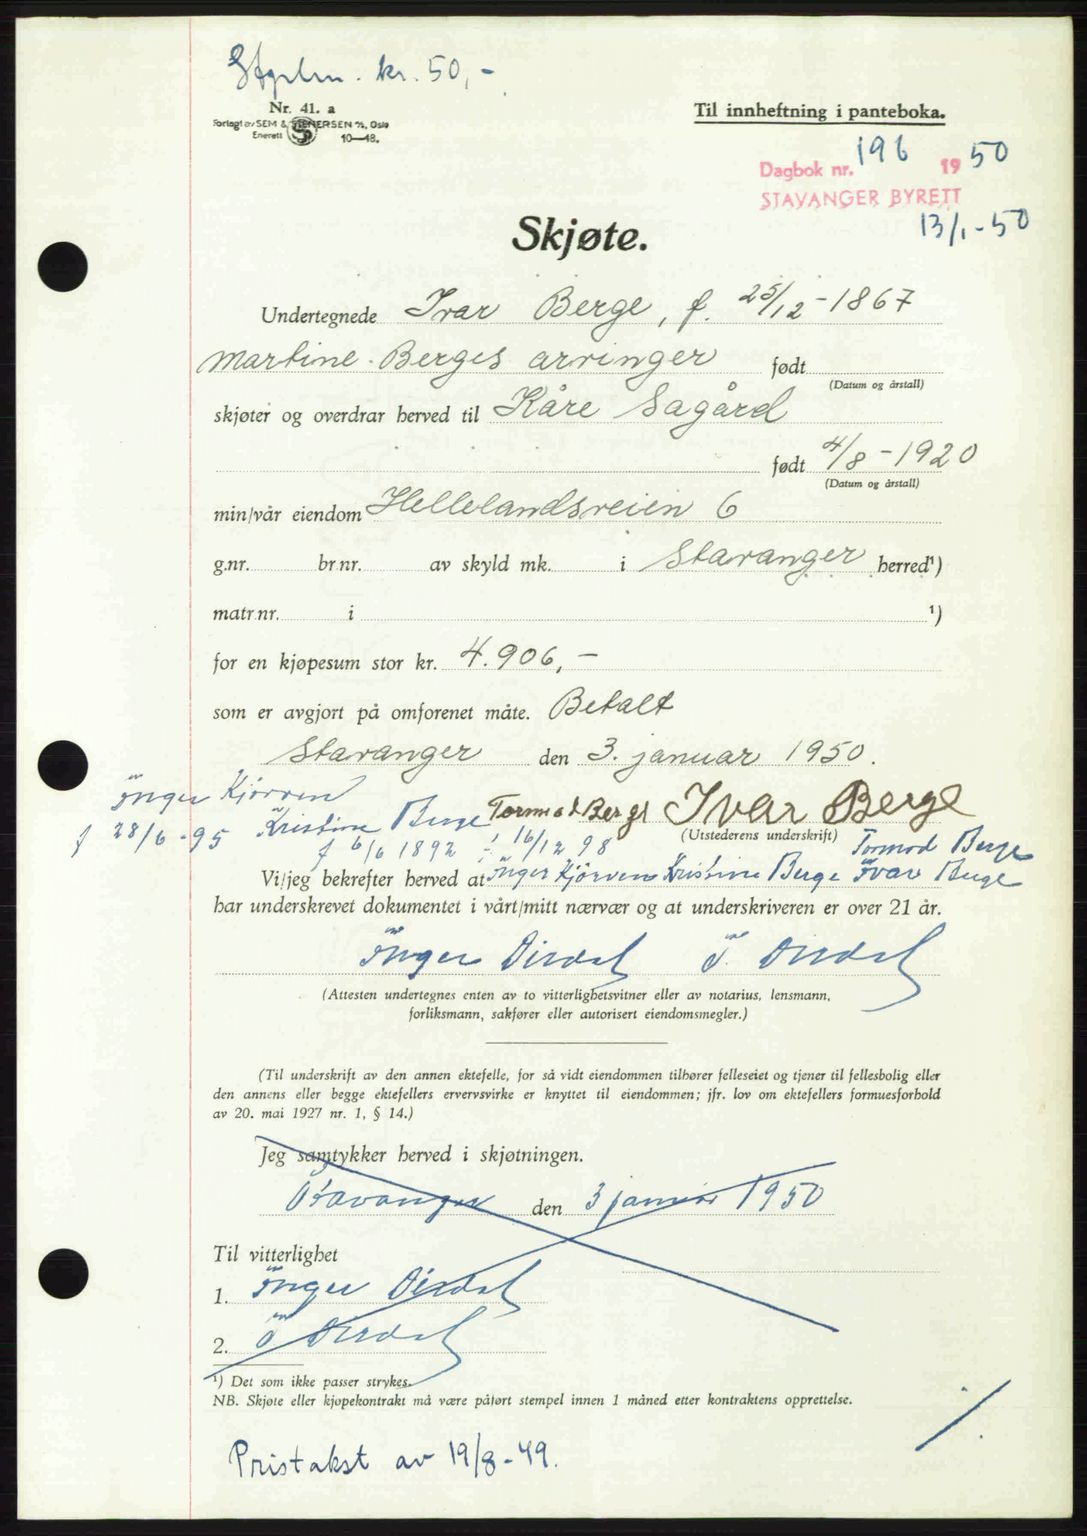 kr. 50,-
Nr. 41. a
Forlagt av SEM & STENERSEN A/S, Oslo
Enerett 10—48.
Til innheftning i panteboka.
Dagbok nr. 196 1950
STAVANGER BYRETT
13/1-50
Skjøte.
Undertegnede Ivar Berge, f. 25/12-1867
Martine Berges arvinger født
(Datum og årstall)
skjøter og overdrar herved til Kåre Sagård
født 4/8-1920
(Datum og årstall)
min/vår eiendom Hellelandsveien 6
g.nr. br.nr. av skyld mk. i Stavanger herred¹)
matr.nr. i ¹)
for en kjøpesum stor kr. 4.906,-
som er avgjort på omforenet måte. Betalt
Stavanger den 3. januar 1950.
Inger Kjörven
f 28/6-95 Kristine Berge Tormod Berge Ivar Berge
f 6/6 1892 f 16/12 98 (Utstederens underskrift) Tormod Berge
Vi/jeg bekrefter herved at Inger Kjörven Kristine Berge Ivar Berge
har underskrevet dokumentet i vårt/mitt nærvær og at underskriveren er over 21 år.
Inger Dirdal T. Dirdal
(Attesten undertegnes enten av to vitterlighetsvitner eller av notarius, lensmann,
forliksmann, sakfører eller autorisert eiendomsmegler.)
(Til underskrift av den annen ektefelle, for så vidt eiendommen tilhører felleseiet og tjener til fellesbolig eller
den annens eller begge ektefellers ervervsvirke er knyttet til eiendommen; jfr. lov om ektefellers formuesforhold
av 20. mai 1927 nr. 1, § 14.)
Jeg samtykker herved i skjøtningen.
Stavanger den 3 januar 1950
Til vitterlighet
1. Inger Dirdal
2. T Dirdal
¹) Det som ikke passer strykes.
NB. Skjøte eller kjøpekontrakt må være påført stempel innen 1 måned etter kontraktens opprettelse.
Pristakst av 19/8-49.